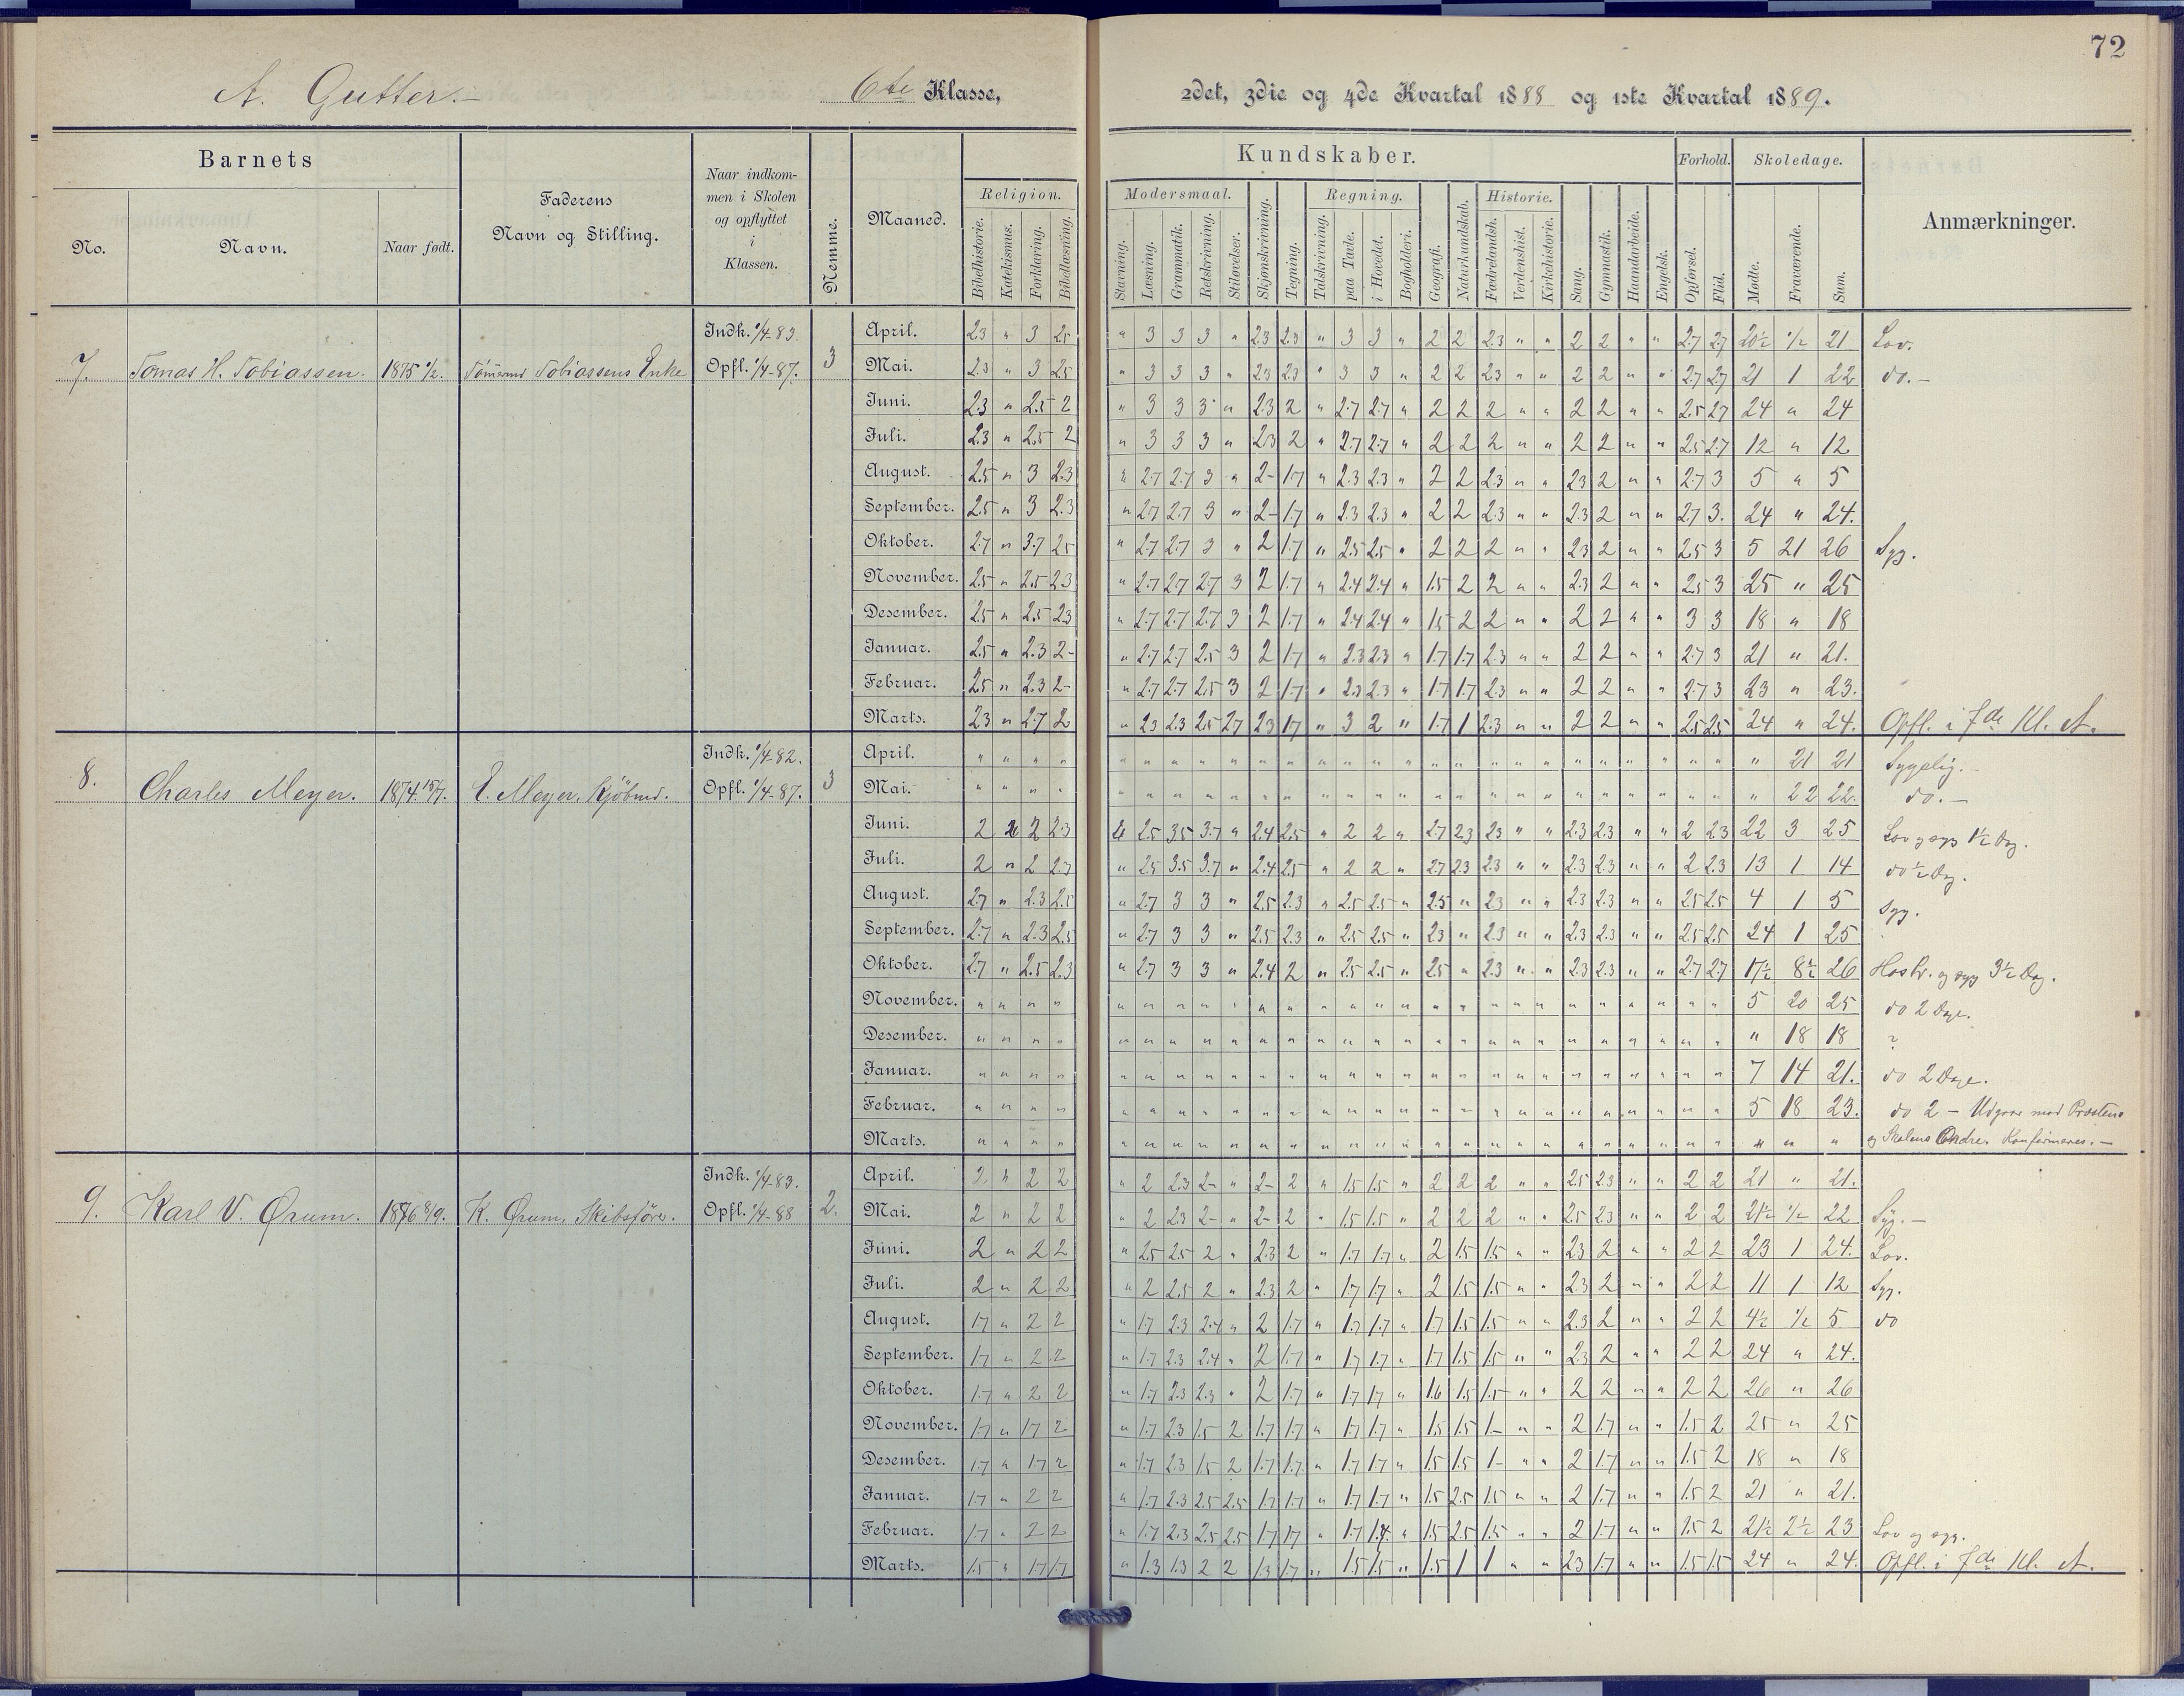 72
A. Gutter.— 6te Klasse, 2det, 3die og 4de Kvartal 1888 og 1ste Kvartal 1889.
Barnets
No. Navn. Naar født. Faderens Navn og Stilling. Naar indkommen i Skolen og opflyttet i Klassen. Nemme. Maaned.
Kundskaber.
Religion. Modersmaal. Regning. Historie. Forhold. Skoledage. Anmærkninger.
Bibelhistorie. Katekismus. Forklaring. Bibellæsning. Stavning. Læsning. Grammatik. Retskrivning. Stiløvelser. Skjønskrivning. Tegning. Talskrivning. paa Tavle. i Hovedet. Bogholderi. Geografi. Naturkundskab. Fædrelandsh. Verdenshist. Kirkehistorie. Sang. Gymnastik. Haandarbeide. Engelsk. Opførsel. Flid. Mødte. Fraværende. Sum.
7. Tomas H. Tobiassen. 1875 Tobiassens Enke Indk. 1/4-83. Opfl. 1/4-87. 3
April. 2.3 " 3 2.5 " 3 3 3 " 2.3 2.3 " 3 3 " 2 2 2.3 " " 2 2 " " 2.7 2.7 20½ ½ 21 Lov.
Mai. 2.3 " 3 2.5 " 3 3 3 " 2.3 2.3 " 3 3 " 2 2 2.3 " " 2 2 " " 2.7 2.7 21 1 22 do.—
Juni. 2.3 " 2.5 2 " 3 3 3 " 2.3 2 " 2.7 2.7 " 2 2 2 " " 2 2 " " 2.5 2.7 24 " 24
Juli. 2.3 " 2.5 2 " 3 3 3 " 2.3 2 " 2.7 2.7 " 2 2 2 " " 2 2 " " 2.5 2.7 12 " 12
August. 2.5 " 3 2.3 " 2.7 2.7 3 " 2- 1.7 " 2.3 2.3 " 2 2 2.3 " " 2.3 2 " " 2.7 3 5 " 5
September. 2.5 " 3 2.3 " 2.7 2.7 3 " 2- 1.7 " 2.3 2.3 " 2 2 2.3 " " 2.3 2 " " 2.7 3. 24 " 24.
Oktober. 2.7 " 3.7 2.5 " 2.7 2.7 3 " 2 1.7 " 2.5 2.5 " 2 2 2 " " 2.3 2 " " 2.5 3 5 21 26 Syg.
November. 2.5 " 2.5 2.3 " 2.7 2.7 2.7 3 2 1.7 " 2.4 2.4 " 1.5 2 2 " " 2.3 2 " " 2.5 3 25 " 25
Desember. 2.5 " 2.5 2.3 " 2.7 2.7 2.7 3 2 1.7 " 2.4 2.4 " 1.5 2 2 " " 2 2 " " 3 3 18 " 18
Januar. 2.5 " 2.3 2- " 2.7 2.7 2.5 3 2 1.7 " 2.3 2.3 " 1.7 1.7 2.3 " " 2 2 " " 2.7 3 21 " 21.
Februar. 2.5 " 2.3 2- " 2.7 2.7 2.5 3 2 1.7 " 2.3 2.3 " 1.7 1.7 2.3 " " 2 2 " " 2.7 3 23 " 23.
Marts. 2.3 " 2.7 2 " 2.3 2.3 2.5 2.7 2.3 1.7 " 3 2 " 1.7 1 2.3 " " 2 2 " " 2.5 2.5 24 " 24. Opfl. i 7de Kl. A.
8. Charles Meyer. 1874 15/7. E. Meyer, Kjöbmd. Indk. 1/4-82. Opfl. 1/4-87. 3
April. " " " " " " " " " " " " " " " " " " " " " " " " " " " 21 21 Sygelig.—
Mai. " " " " " " " " " " " " " " " " " " " " " " " " " " " 22 22. do.—
Juni. 2 2 2.3 2.5 3.5 3.7 " 2.4 2.5 " 2 2 " 2.7 2.3 2.3 " " 2.3 2.3 " " 2 2.3 22 3 25 Lov og syg 1½ Dag.
Juli. 2 " 2 2.7 " 2.5 3.5 3.7 " 2.4 2.5 " 2 2 " 2.7 2.3 2.3 " " 2.3 2.3 " " 2 2.3 13 1 14 do ½ Dag.
August. 2.7 " 2.3 2.5 " 2.7 3 3 " 2.5 2.3 " 2.5 2.5 " 2.5 " 2.3 " " 2.3 2.3 " " 2.5 2.5 4 1 5 Syg.
September. 2.7 " 2.3 2.5 " 2.7 3 3 " 2.5 2.3 " 2.5 2.5 " 2.3 " 2.3 " " 2.3 2.3 " " 2.5 2.5 24 1 25
Oktober. 2.7 " 2.5 2.3 " 2.7 3 3 " 2.4 2 " 2.5 2.5 " 2.5 " 2.3 " " 2.3 2.3 " " 2.7 2.7 17½ 8½ 26 og syg 3½ Dag.
November. " " " " " " " " " " " " " " " " " " " " " " " " " " 5 20 25 do 2 Dage.
Desember. " " " " " " " " " " " " " " " " " " " " " " " " " " " 18 18 ?
Januar. " " " " " " " " " " " " " " " " " " " " " " " " " " 7 14 21. do 2 Dage.
Februar. " " " " " " " " " " " " " " " " " " " " " " " " " " 5 18 23. do 2 — Udgaar med Præstens
Marts. " " " " " " " " " " " " " " " " " " " " " " " " " " " " " og Skolens Konfirmeres.—
9. Karl V. Ørum. 1876 8/9. K. Ørum, Skibsfører. Indk. 1/4-83. Opfl. 1/4-88 2.
April. 2 " 2 2 " 2 2.3 2- " 2- 2 " 1.5 1.5 " 2 2 2 " " 2.5 2.3 " " 2 2 21 " 21.
Mai. 2 " 2 2 " 2 2.3 2- " 2- 2 " 1.5 1.5 " 2 2 2 " " 2.5 2.3 " " 2 2 21½ ½ 22 Syg.—
Juni. 2 " 2 2 " 2.5 2.5 2 " 2.3 2 " 1.7 1.7 " 2 1.5 1.5 " " 2.3 2 " " 2 2 23 1 24. Lov.
Juli. 2 " 2 2 " 2 2.5 2 " 2.3 2 " 1.7 1.7 " 2 1.5 1.5 " " 2.3 2 " " 2 2 11 1 12 Syg.
August. 1.7 " 2 2 " 1.7 2.3 2.4 " 2 1.7 " 1.7 1.7 " 1.7 1.5 1.5 " " 2.3 2 " " 2 2 4½ ½ 5 do
September. 1.7 " 2 2 " 1.7 2.3 2.4 " 2 1.7 " 1.7 1.7 " 1.7 1.5 1.5 " " 2.3 2 " " 2 2 24 " 24.
Oktober. 1.7 " 2 2 " 1.7 2.3 2.3 " 2 1.7 " 1.7 1.7 " 1.6 1.5 1.5 " " 2 2 " " 2 2 26 " 26
November. 1.7 " 1.7 2 " 1.7 2.3 1.5 2 1.7 1.7 " 1.7 1.7 " 1.5 1.5 1- " " 2 1.7 " " 1.5 2 25 " 25
Desember. 1.7 " 1.7 2 " 1.7 2.3 1.5 2 1.7 1.7 " 1.7 1.7 " 1.5 1.5 1- " " 2 1.7 " " 1.5 2 18 " 18
Januar. 1.7 " 2 2 " 1.7 2.3 2.5 2.5 1.7 1.7 " 1.7 1.7 " 1.5 2.5 1.5 " " 2 1.7 " " 1.5 2 21 " 21.
Februar. 1.7 " 2 2 " 1.7 2.3 2.5 2.5 1.7 1.7 " 1.7 1.7 " 1.5 2.5 1.5 " " 2 1.7 " " 1.5 2 21½ 2½ 23 Lov og syg.
Marts. 1.5 " 1.7 1.7 " 1.3 1.3 2 2 1.3 1.7 " 1.5 1.5 " 1.5 1 1 " " 2.3 1.7 " " 1.5 1.5 24 " 24. Opfl. i 7de Kl. A.